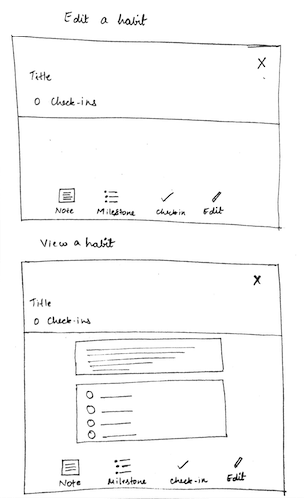 Edit a habit
X
Title
0 Check-ins
Note Milestone Checkin Edit
View a habit
X
Title
0 Check-ins
Note Milestone Check-in Edit